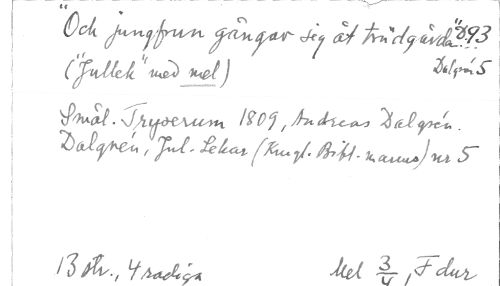 "Och jungfrun gångar sig åt trädgården"... D93
("Jullek" med mel) Dalgrén 5
Smål. Tryserum 1809, Andreas Dalgrén.
Dalgrén, Jul-Lekar (Kungl. Bibl. manus) nr 5
13 str., 4 radiga Mel 3/4, F dur